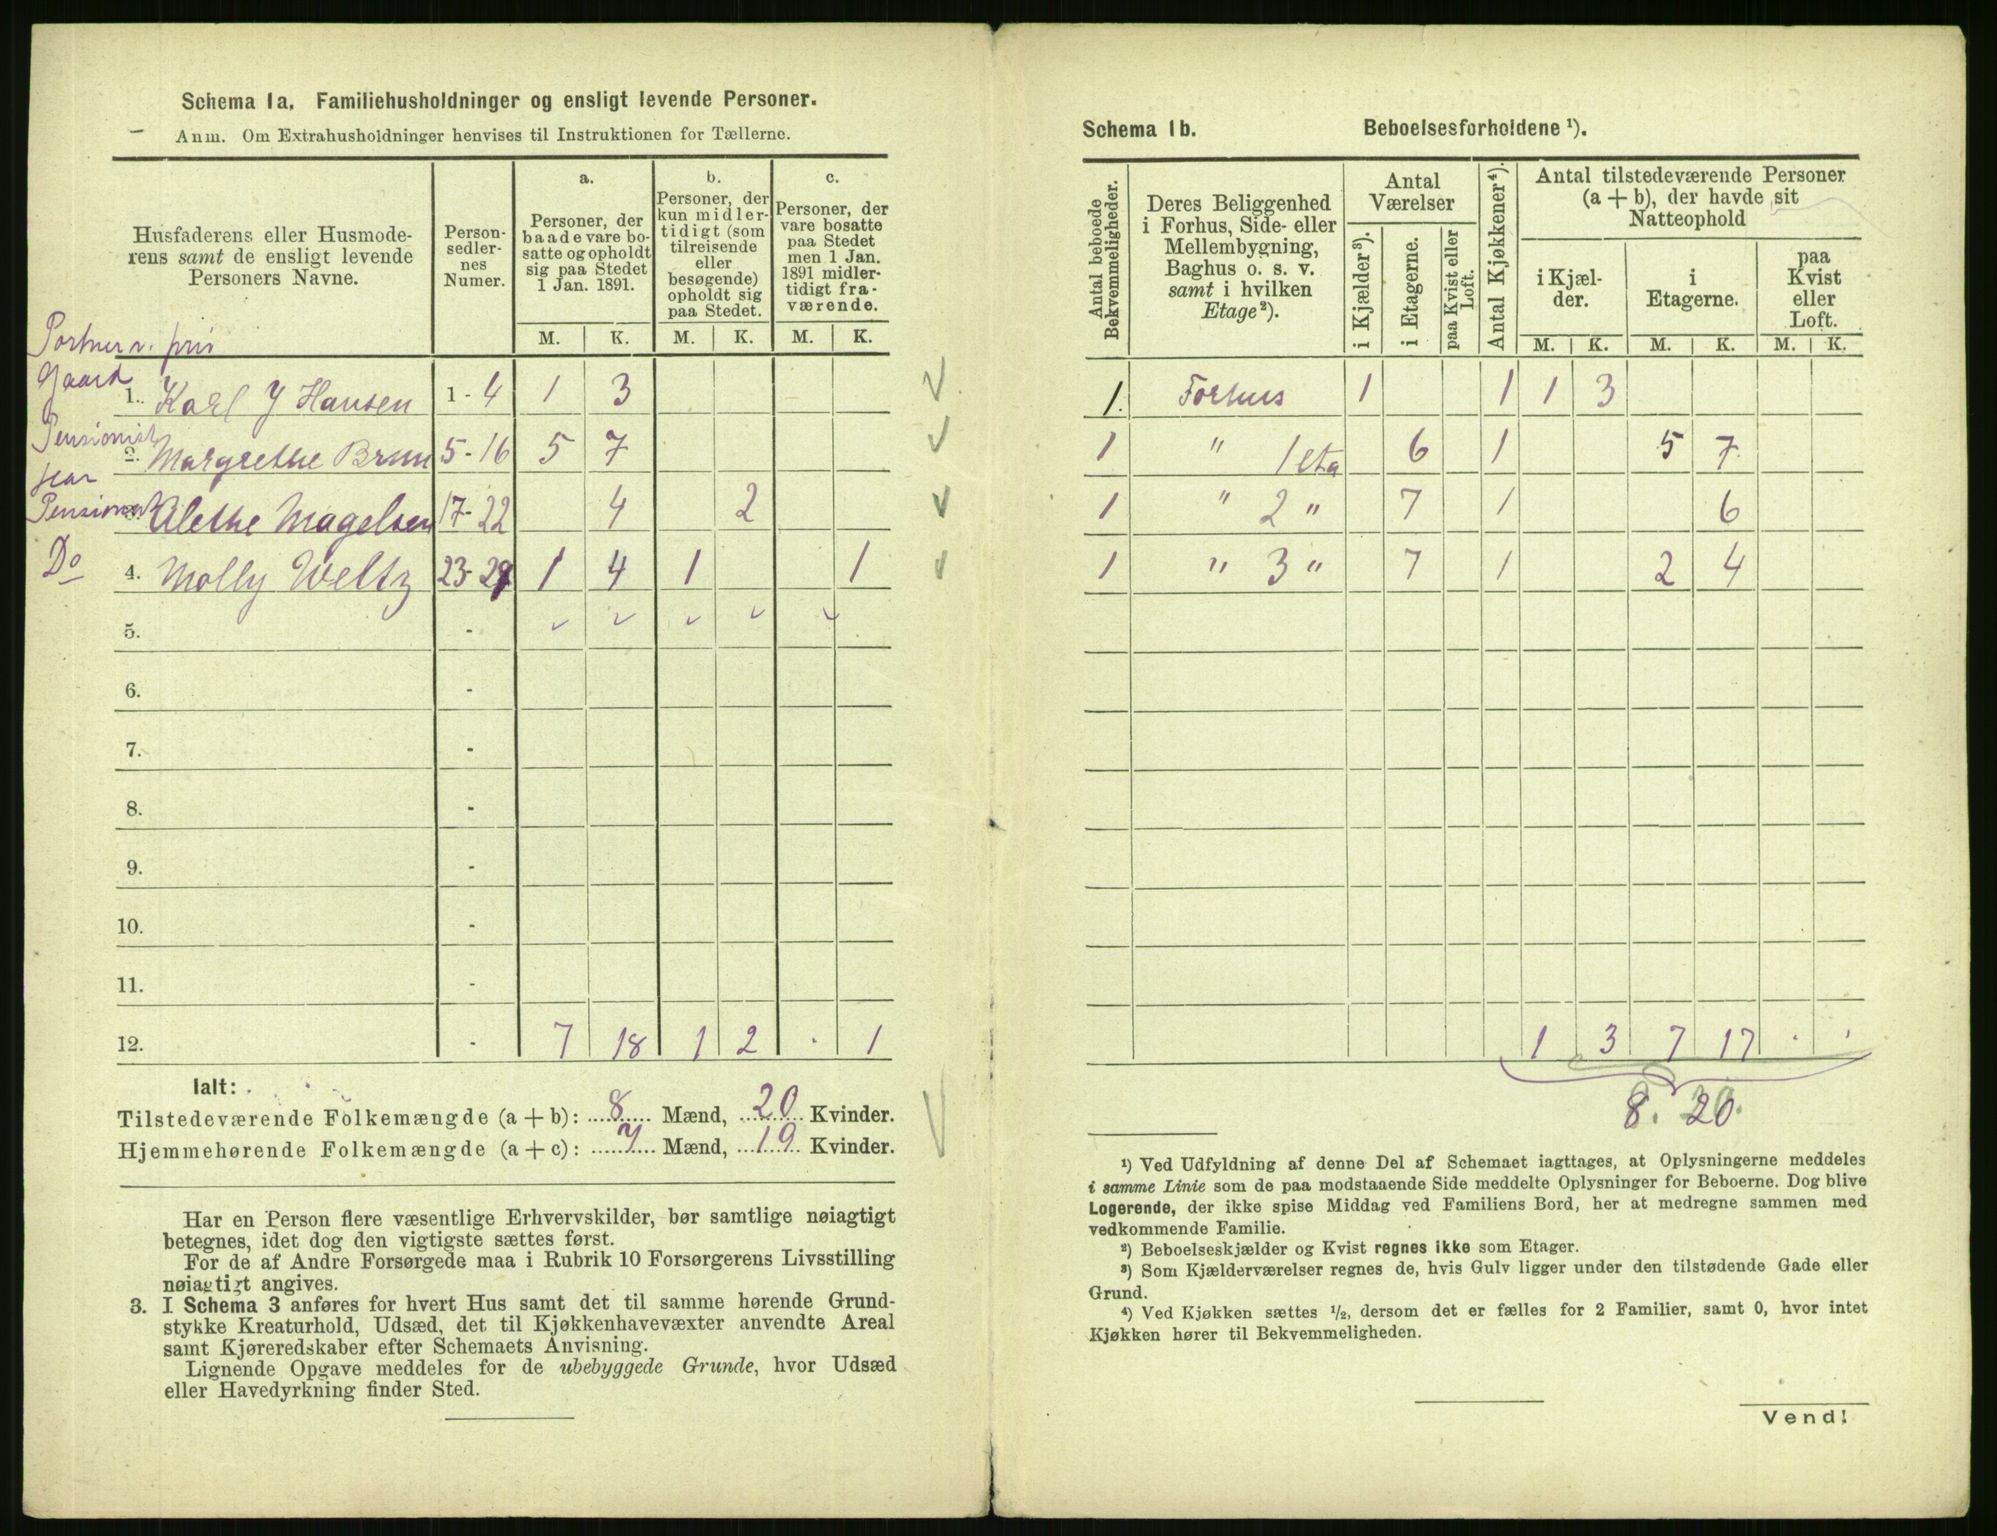 Schema 1a. Familiehusholdninger og ensligt levende Personer.
Anm. Om Extrahusholdninger henvises til Instruktionen for Tællerne.
Husfaderens eller Husmoderens samt de ensligt levende Personers Navne. | Personsedlernes Numer. | a. Personer, der baade vare bosatte og opholdt sig paa Stedet 1 Jan. 1891. | b. Personer, der kun midlertidigt (som tilreisende eller besøgende) opholdt sig paa Stedet. | c. Personer, der vare bosatte paa Stedet men 1 Jan. 1891 midlertidigt fraværende.
M. | K. | M. | K. | M. | K.
Portner v. pri
Gaard
1. Karl J Hansen | 1-4 | 1 | 3
Pensionist
2. Margrethe Brun | 5-16 | 5 | 7
Pensionat
3. Alethe Magelsen | 17-22 | | 4 | | 2
Do 4. Molly Weltz | 23-29 | 1 | 4 | 1 | | | 1
5. -
6. -
7. -
8. -
9. -
10. -
11. -
12. - | 7 | 18 | 1 | 2 | . | 1
Ialt:
Tilstedeværende Folkemængde (a + b): 8 Mænd, 20 Kvinder.
Hjemmehørende Folkemængde (a + c): 7 Mænd, 19 Kvinder.
Har en Person flere væsentlige Erhvervskilder, bør samtlige nøiagtigt
betegnes, idet dog den vigtigste sættes først.
For de af Andre Forsørgede maa i Rubrik 10 Forsørgerens Livsstilling
nøiagtigt angives.
3. I Schema 3 anføres for hvert Hus samt det til samme hørende Grund-
stykke Kreaturhold, Udsæd, det til Kjøkkenhavevæxter anvendte Areal
samt Kjøreredskaber efter Schemaets Anvisning.
Lignende Opgave meddeles for de ubebyggede Grunde, hvor Udsæd
eller Havedyrkning finder Sted.
Schema 1b. Beboelsesforholdene ¹).
Antal beboede Bekvemmeligheder. | Deres Beliggenhed i Forhus, Side- eller Mellembygning, Baghus o. s. v. samt i hvilken Etage ²). | Antal Værelser | Antal Kjøkkener ⁴). | Antal tilstedeværende Personer (a + b), der havde sit Natteophold
i Kjælder ³). | i Etagerne. | paa Kvist eller Loft. | i Kjælder. | i Etagerne. | paa Kvist eller Loft.
M. | K. | M. | K. | M. | K.
1. | Forhus | 1 | | | 1 | 1 | 3
1 | " 1 eta | | 6 | | 1 | | | 5 | 7
1 | " 2 " | | 7 | | 1 | | | | 6
1 | " 3 " | | 7 | | 1 | | | 2 | 4
1 | 3 | 7 | 17 | . | .
8. 20.
¹) Ved Udfyldning af denne Del af Schemaet iagttages, at Oplysningerne meddeles
i samme Linie som de paa modstaaende Side meddelte Oplysninger for Beboerne. Dog blive
Logerende, der ikke spise Middag ved Familiens Bord, her at medregne sammen med
vedkommende Familie.
²) Beboelseskjælder og Kvist regnes ikke som Etager.
³) Som Kjælderværelser regnes de, hvis Gulv ligger under den tilstødende Gade eller
Grund.
⁴) Ved Kjøkken sættes ½, dersom det er fælles for 2 Familier, samt 0, hvor intet
Kjøkken hører til Bekvemmeligheden.
Vend!